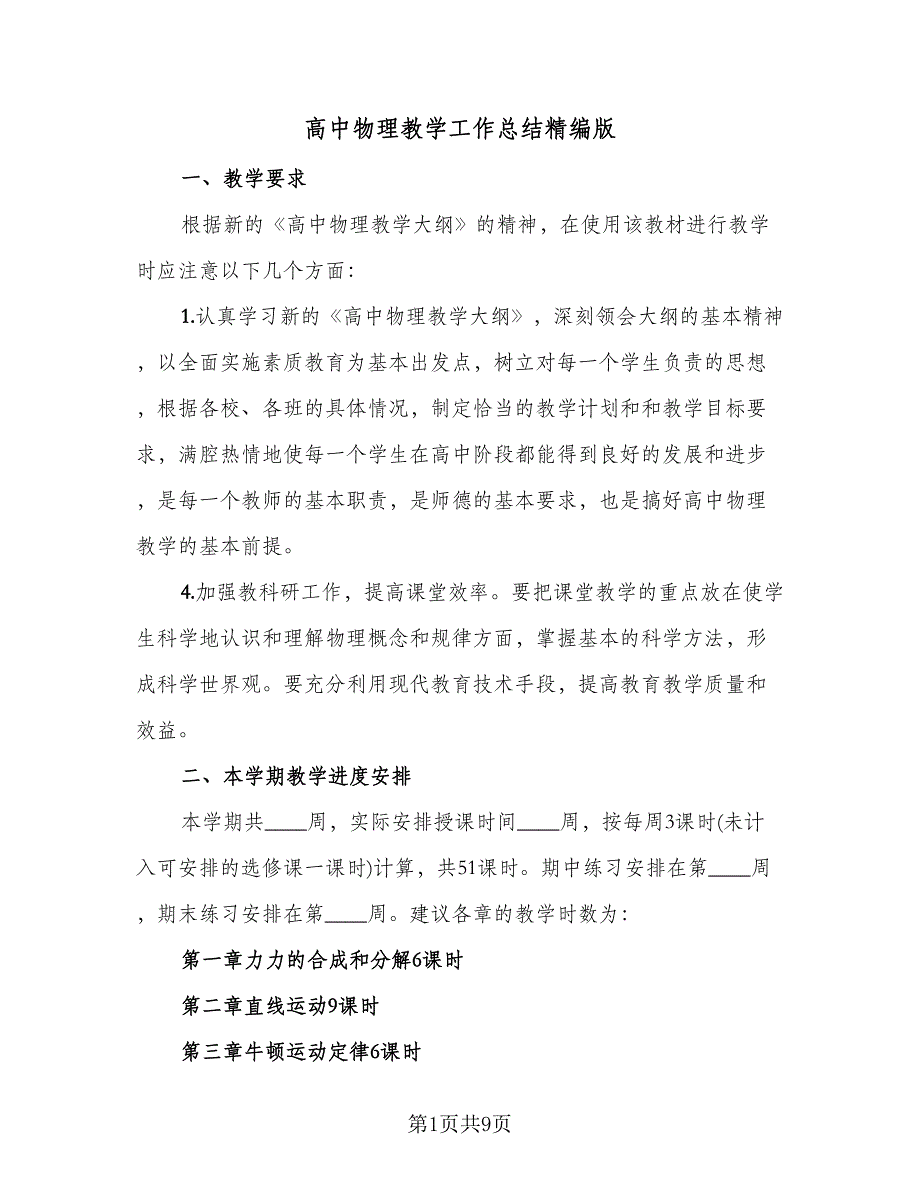 高中物理教学工作总结精编版
一、教学要求
根据新的《高中物理教学大纲》的精神，在使用该教材进行教学
时应注意以下几个方面：
1.认真学习新的《高中物理教学大纲》，深刻领会大纲的基本精神
，以全面实施素质教育为基本出发点，树立对每一个学生负责的思想
，根据各校、各班的具体情况，制定恰当的教学计划和和教学目标要
求，满腔热情地使每一个学生在高中阶段都能得到良好的发展和进步
，是每一个教师的基本职责，是师德的基本要求，也是搞好高中物理
教学的基本前提。
4.加强教科研工作，提高课堂效率。要把课堂教学的重点放在使学
生科学地认识和理解物理概念和规律方面，掌握基本的科学方法，形
成科学世界观。要充分利用现代教育技术手段，提高教育教学质量和
效益。
二、本学期教学进度安排
本学期共____周，实际安排授课时间____周，按每周3课时(未计
入可安排的选修课一课时)计算，共51课时。期中练习安排在第____周
，期末练习安排在第____周。建议各章的教学时数为：
第一章力力的合成和分解6课时
第二章直线运动9课时
第三章牛顿运动定律6课时
第1页共9页